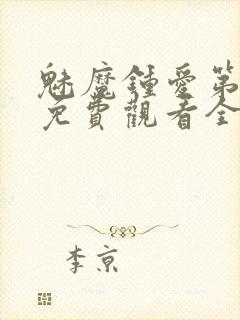 魅魔鍾愛第
免費觀看全
李京